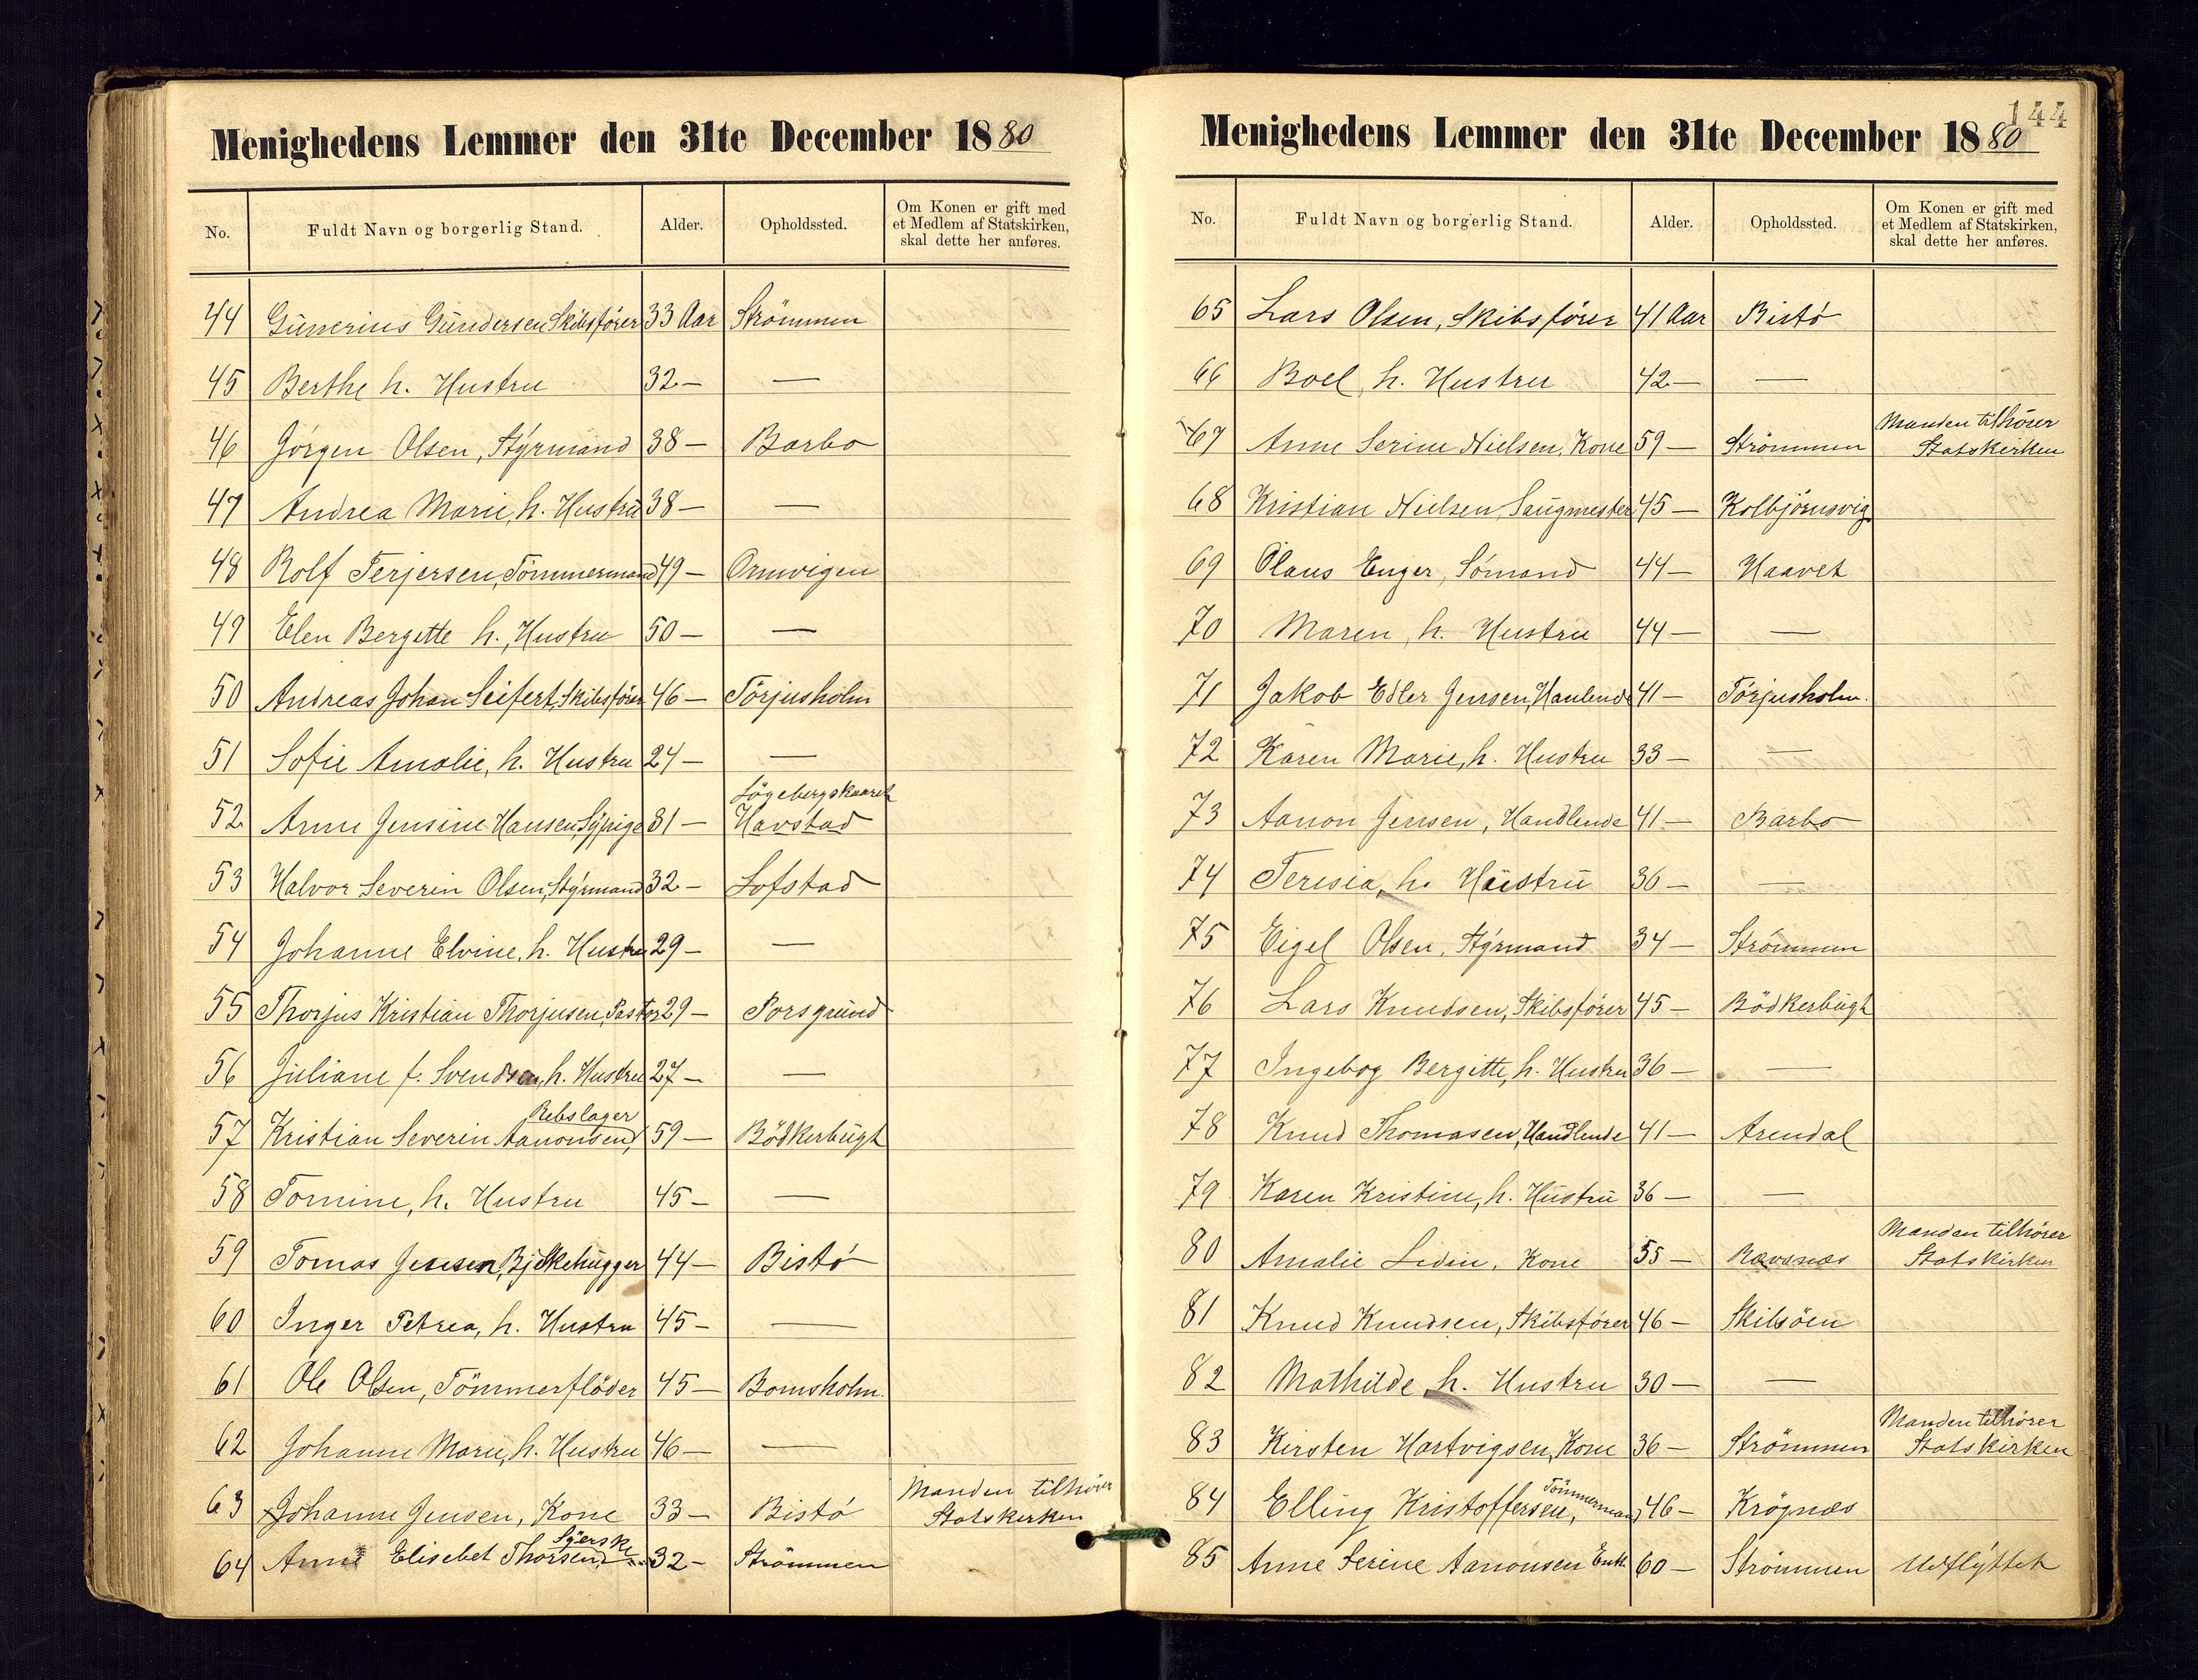 Menighedens Lemmer den 31te December 1880
No. Fuldt Navn og borgerlig Stand. Alder. Opholdssted. Om Konen er gift med et Medlem af Statskirken, skal dette her anføres.
44 Gunerius Gundersen Skibsfører 33 Aar Strömmen
45 Berthe h. Hustru 32 — —
46 Jörgen Olsen, Styrmand 38 — Barbo
47 Andrea Marie, h. Hustru 38 — —
48 Rolf Terjersen, Tömmermand 49 — Ornvigen
49 Elen Bergitte h. Hustru 50 — —
50 Andreas Johan Seifert, Skibsfører 46 — Törjusholm
51 Sofie Amalie, h. Hustru 24 — —
Lögebergskaaret
52 Anne Jensine Hansen Sypige 31 — Havstad
53 Halvor Severin Olsen, Styrmand 32 — Lofstad
54 Johanne Elvine, h. Hustru 29 — —
55 Thorjus Kristian Thorjusen, Pastor 29 — Porsgrund
56 Juliane f. Svendsen, h. Hustru 27 — —
Rebslager
57 Kristian Severin Aanonsen, 59 — Bödkerbugt
58 Tomine, h. Hustru 45 — —
59 Tomas Jensen, Bjelkehugger 44 — Bistö
60 Inger Petrea, h. Hustru 45 — —
61 Ole Olsen, Tömmerflöder 45 — Bomsholm.
62 Johanne Marie, h. Hustru 46 — —
Manden tilhörer
63 Johanne Jensen, Kone 33 — Bistö Statskerken
Syerske
64 Anne Elisebet Thorsen 32 — Strömmen
144
Menighedens Lemmer den 31te December 1880
No. Fuldt Navn og borgerlig Stand. Alder. Opholdssted. Om Konen er gift med et Medlem af Statskirken, skal dette her anføres.
65 Lars Olsen, Skibsfører 41 Aar Bistö
66 Boel, h. Hustru 42 — —
Manden tilhörer
67 Anne Serine Nielsen, Kone 59 — Strömmen Statskirken
68 Kristian Nielsen, Saugmester 45 — Kolbjörnsvig
69 Olaus Enger, Sömand 44 — Haavet
70 Maren, h. Hustru 44 — —
71 Jakob Edler Jensen, Hanlende 41 — Törjusholm.
72 Karen Marie, h. Hustru 33 — —
73 Aanon Jensen, Handlende 41 — Barbo
74 Teresia, h. Hustru 36 — —
75 Eigel Olsen, Styrmand 34 — Strömmen
76 Lars Knudsen, Skibsfører 45 — Bödkerbugt
77 Ingebog Bergitte, h. Hustru 36 — —
78 Knud Thomasen, Handlende 41 — Arendal
79 Karen Kristine, h. Hustru 36 — —
Manden tilhörer
80 Amalie Lidin, Kone 55 — Ravnæs Statskirken
81 Knud Knudsen, Skibsfører 46 — Skilsöen
82 Mathilde, h. Hustru 30 — —
Manden tilhörer
83 Kirsten Hartvigsen, Kone 36 — Strömmen Statskirken
84 Elling Kristoffersen, Tömmermand 46 — Krögnæs
85 Anne Serine Aanonsen Enk. 60 — Strömmen Udflyttet